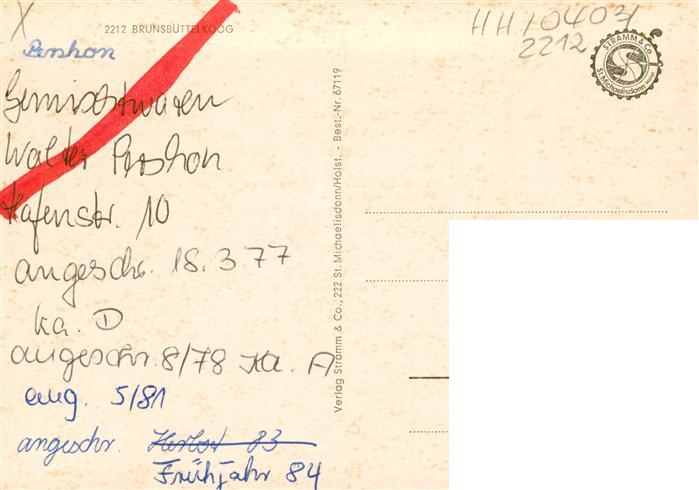 2212 BRUNSBÜTTELKOOG
HH 10403/
2212
STRAMM & Co.
St. Michaelisdonn Holst.
Pershon
Gemischtwaren
Walter Pershon
Hafenstr. 10
angeschr. 18.3.77
ka. D
angeschr. 8/78 Ka. A
ang. 5/81
angeschr. Herbst 83
Frühjahr 84
Verlag Stramm & Co., 222 St. Michaelisdonn/Holst. - Best.-Nr. 67119